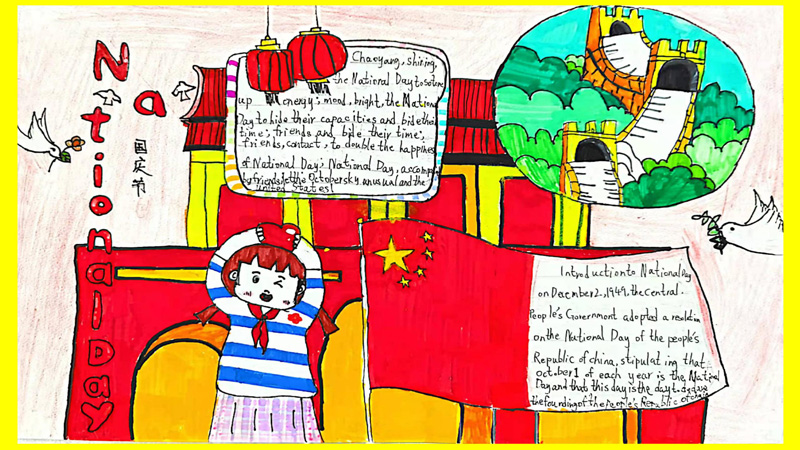 National Day
国庆节
Chaoyang, shining,
the National Day to
up energy; mood, bright, the National
Day to bide their capacities and bide their
time; friends and, bide their time;
friends, contact, to double the happines
of National Day's National Day, a
by friends the October sky unusual and the
united States!
Introduction to National Day
on December 2, 1949, the Central
People's Government adopted a resolution
on the National Day of the people's
Republic of china, stipulating that
october 1 of each year is the National
Day and that this day is the day to declare
the founding of the People's Republic of china